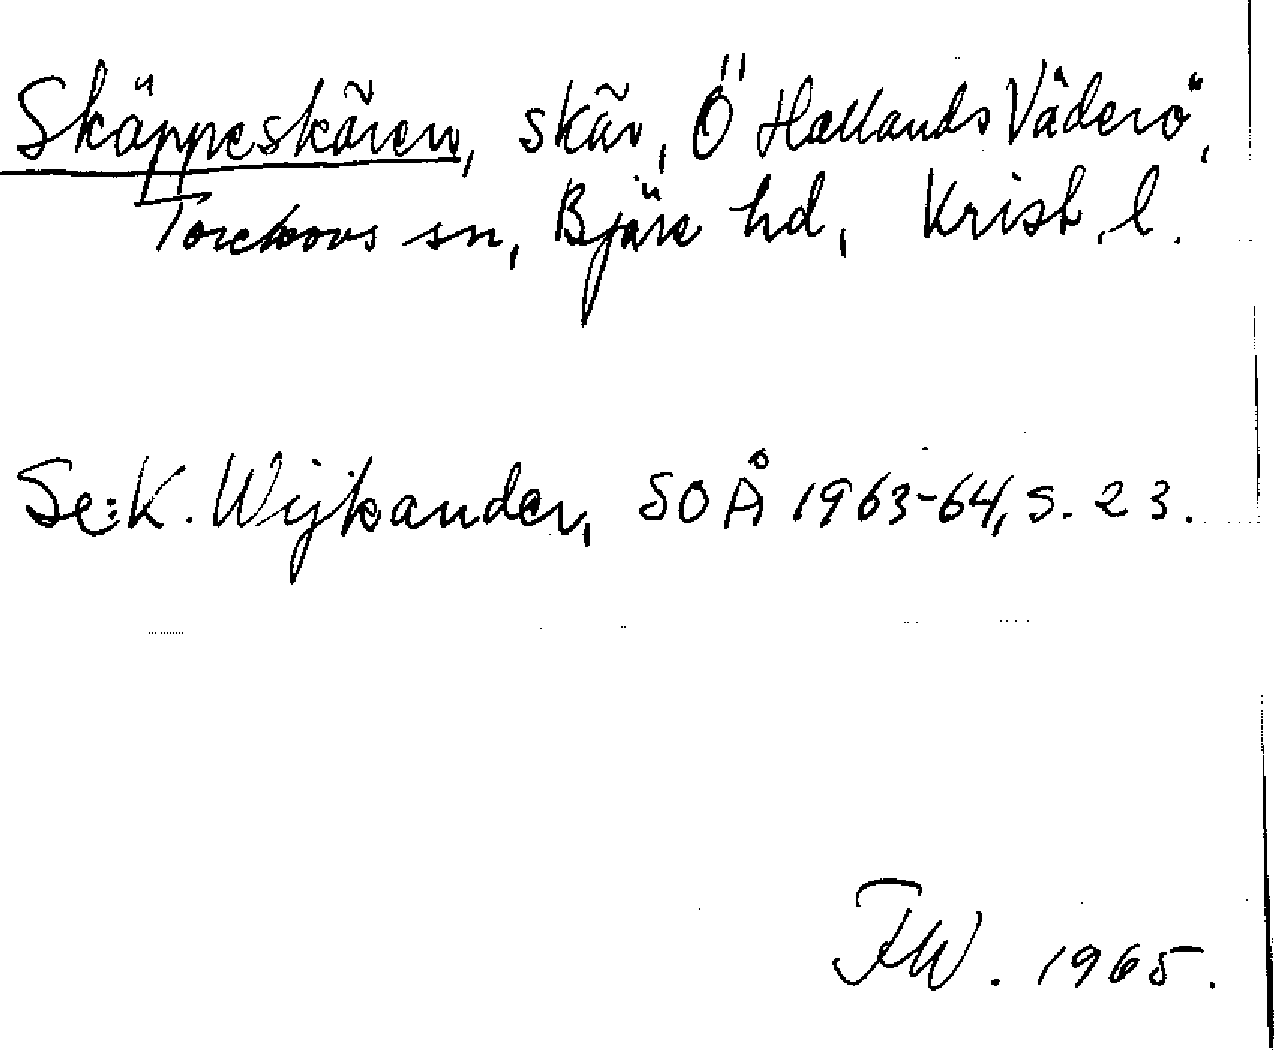 Skäppeskären, skär, Ö Hallands Väderö,
Torekovs sn, Bjäre hd, Krist. l.
Se: K. Wijkander, SOÅ 1963-64, s. 23.
FW. 1965.